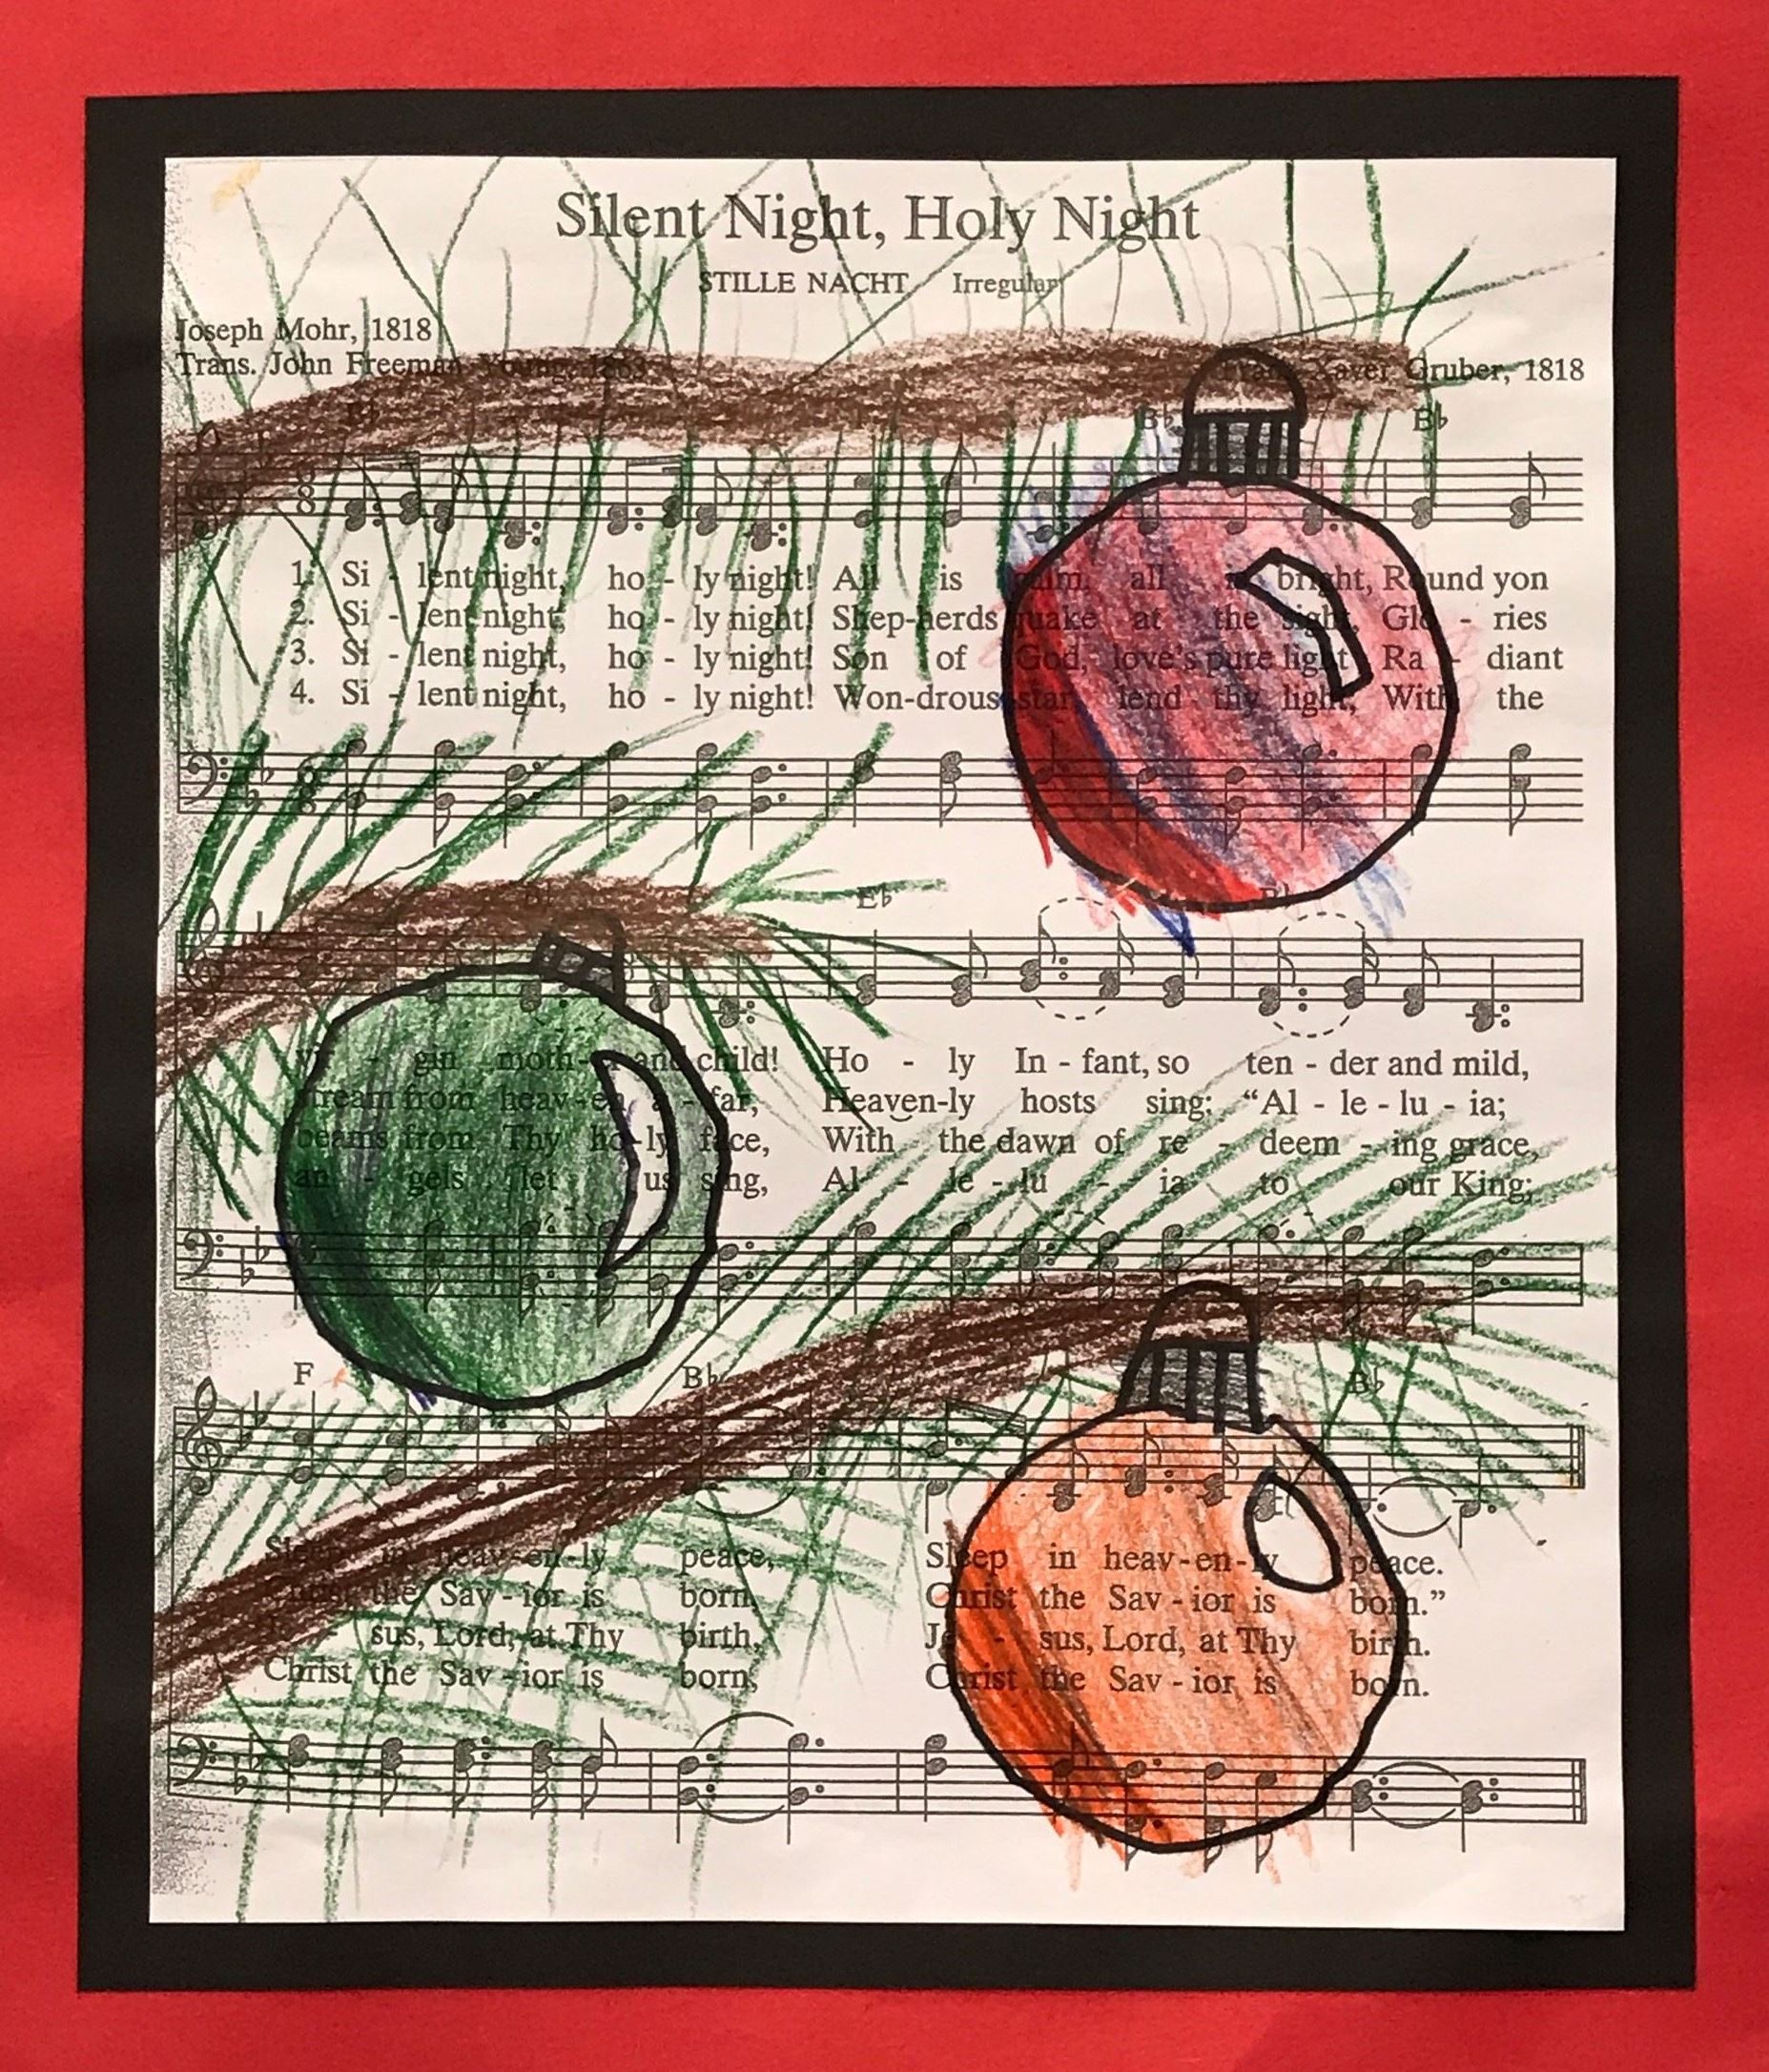 Silent Night, Holy Night
STILLE NACHT Irregular
Joseph Mohr, 1818
Trans. John Freeman Young, 1863
Franz Xaver Gruber, 1818
B♭ B♭ B♭
1. Si - lent night, ho - ly night! All is calm, all is bright, Round yon
2. Si - lent night, ho - ly night! Shep-herds quake at the sight, Glo - ries
3. Si - lent night, ho - ly night! Son of God, love's pure light Ra - diant
4. Si - lent night, ho - ly night! Won-drous star, lend thy light, With the
B♭ E♭ B♭
vir - gin moth-er and child! Ho - ly In - fant, so ten - der and mild,
stream from heav-en a - far, Heaven-ly hosts sing: “Al - le - lu - ia;
beams from Thy ho-ly face, With the dawn of re - deem - ing grace,
an - gels let us sing, Al - le - lu - ia to our King;
F B♭ B♭
Sleep in heav-en-ly peace, Sleep in heav-en-ly peace.
Christ the Sav - ior is born, Christ the Sav - ior is born.”
Je - sus, Lord, at Thy birth, Je - sus, Lord, at Thy birth.
Christ the Sav - ior is born, Christ the Sav - ior is born.